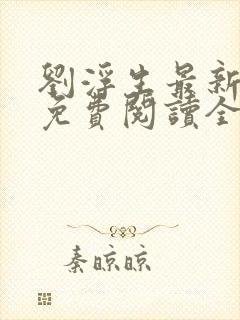 劉浮生最新
免費閱讀全
秦晾晾